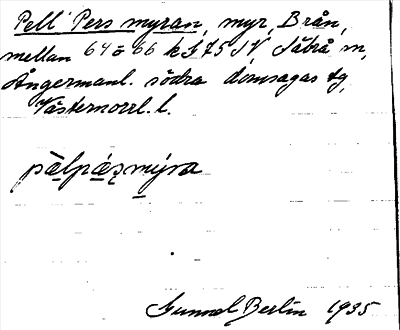 Pell Pers myran, myr, Brån,
mellan 64 o 66 k f 75 SV, Säbrå sn,
Ångermanl. södra domsagas tg,
Västernorrl. l.
pälpæsmýra
Gunnel Berlin 1935